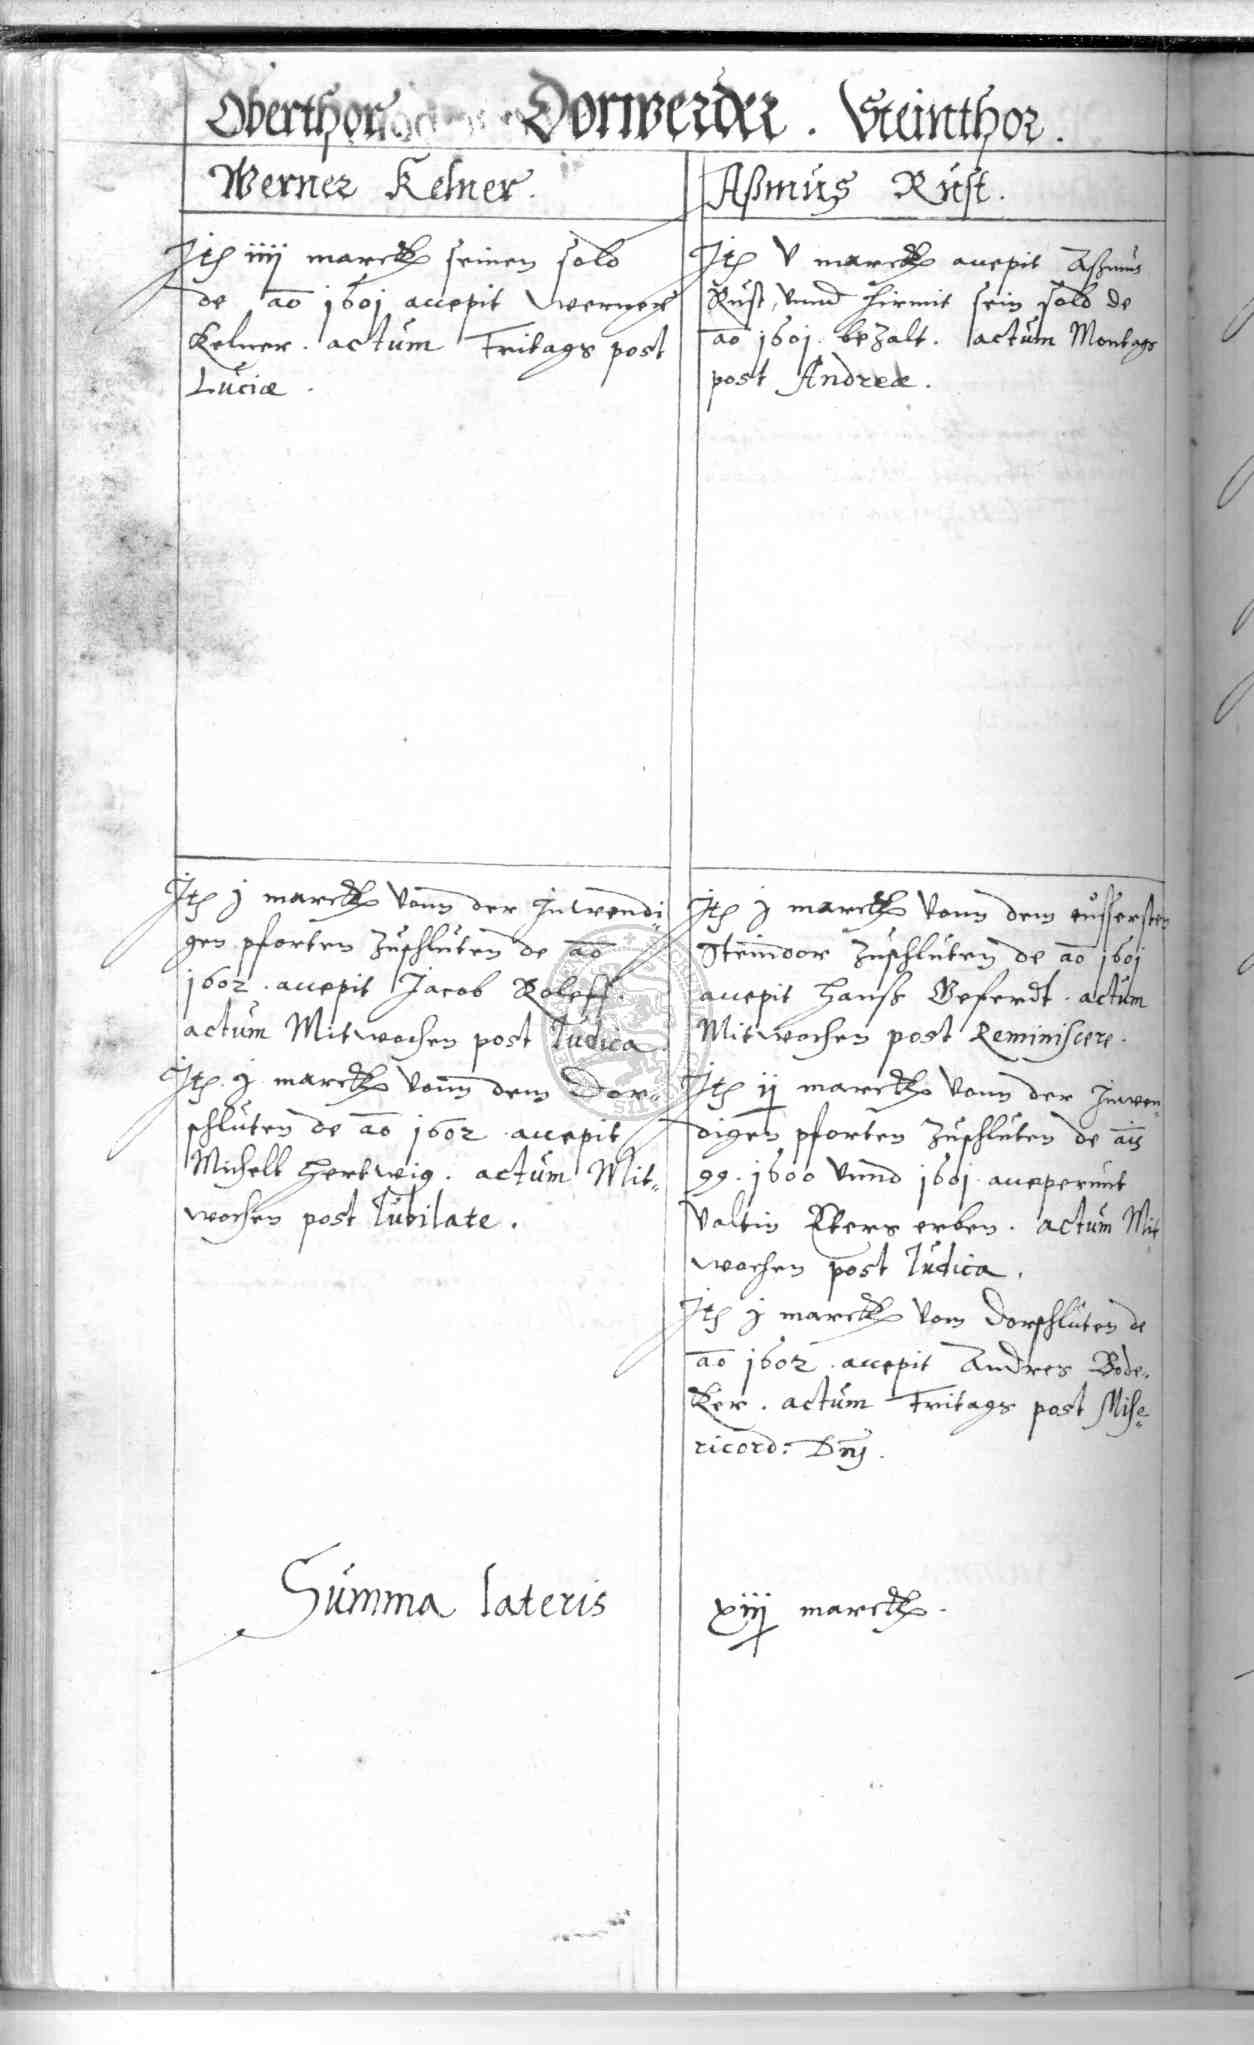 Oberthor Dorwerder. Steinthor.
Werner Kelner.
Jtē iiij marck seinen sold
de aō 1601 accepit Werner
Kelner. actum Fritags post
Luciæ.
Jtē j marck vonn der Inwendi-
gen pforten zuschluten de aō
1602. accepit Jacob Roleff.
actum Mitwochen post Iudica.
Jtē j marck vonn dem Dor-
schluten de aō 1602 accepit
Michell Hertwig. actum Mit-
wochen post Iubilate.
Aßmus Rust.
Jtē v marck accepit Aßmus
Rust, vnnd hirmit sein sold de
aō 1601. bezalt. actum Montags
post Andreæ.
Jtē j marck vonn dem eussersten
Steindoor zuschluten de aō 1601
accepit Hanß Geferdt. actum
Mitwochen post Reminiscere.
Jtē ij marck vonn der Inwen-
digen pforten zuschluten de aīs
99. 1600 vnnd 1601. acceperunt
Valtin Ebers erben. actum Mit
wochen post Iudica.
Jtē j marck vom Dorschluten de
aō 1602. accepit Andres Bode-
ker. actum Fritags post Mise-
ricord: Dnj.
Summa lateris xiiij marck.